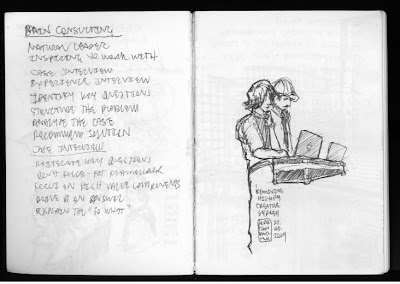 BAIN CONSULTING
NATURAL LEADER
INSPIRING TO WORK WITH
CASE INTERVIEW
EXPERIENCE INTERVIEW
IDENTIFY KEY QUESTIONS
STRUCTURE THE PROBLEM
ANALYZE THE CASE
RECOMMEND SOLUTION
CASE INTERVIEW
KEY QUESTIONS
DON'T FORCE-FIT FRAMEWORK
FOCUS ON HIGH VALUE COMPONENTS
DRIVE TO AN ANSWER
EXPLAIN THE "SO WHAT"
CREATIVE
2009